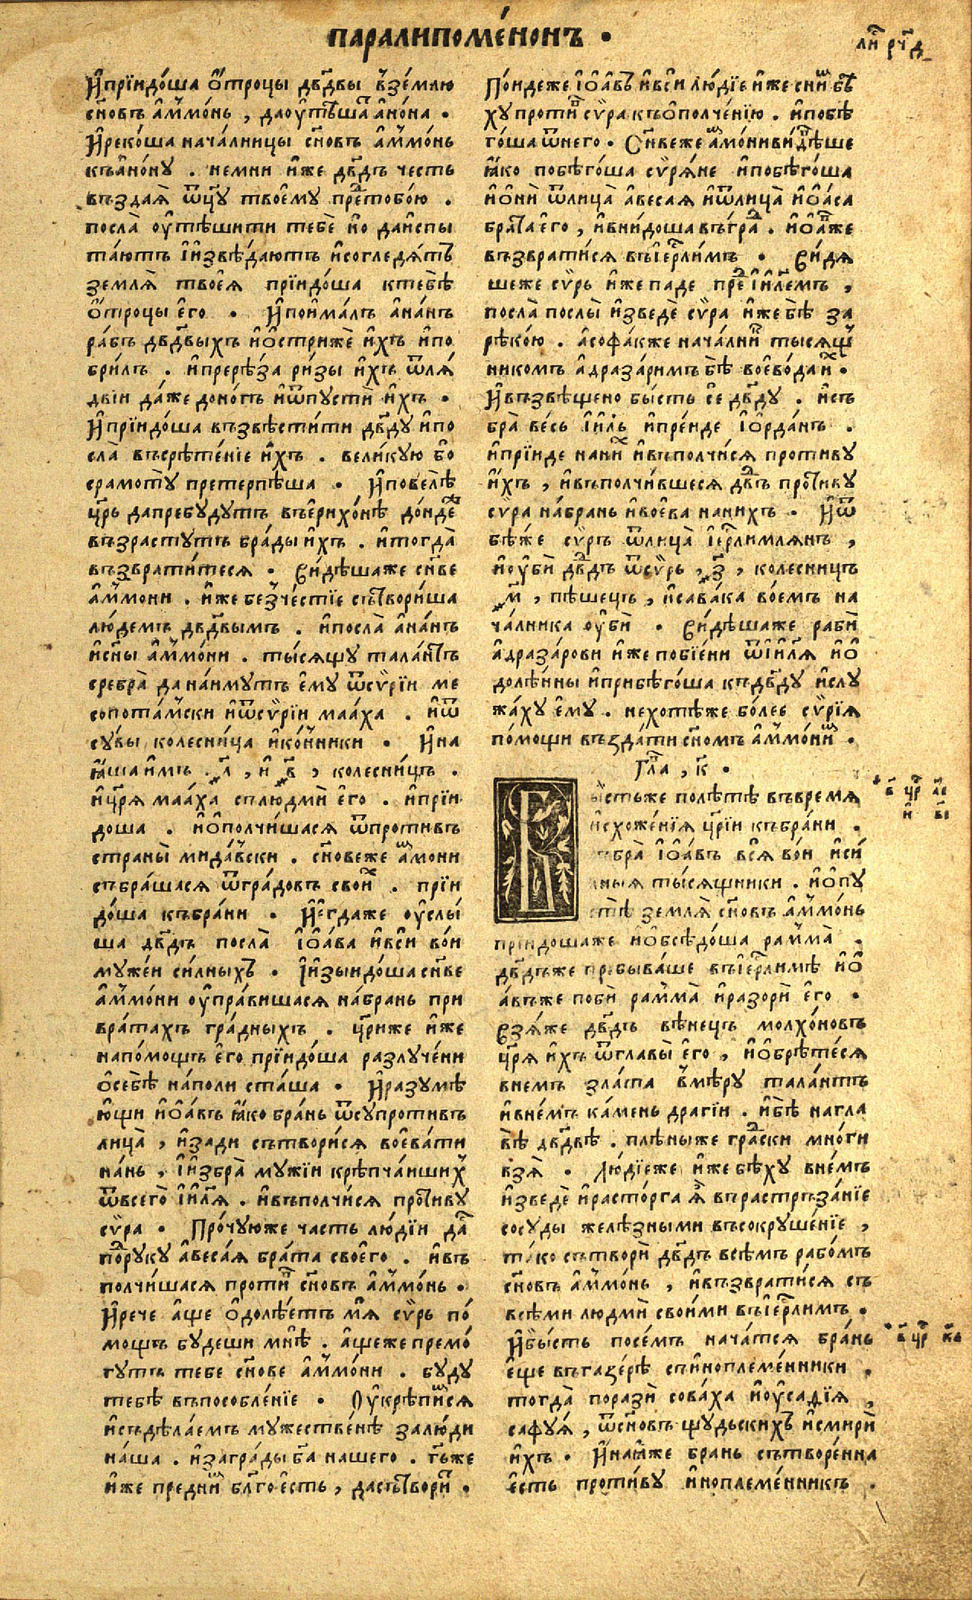 паралипоме́нонъ •
ли́ рчд
И҆прїидо́ша ѻ҆́троцы дв҃двы вꙁе́млю
сн҃овъ а҆ммо́нь , даоу҆тѣшатъ а҆но́на •
И҆реко́ша нача́лницы сн҃овъ а҆ммо́нь
къа҆но́нꙋ . немни и҆́же дв҃дъ честь
въздая̀ ѿц҃ꙋ твоемꙋ̀ претобо́ю .
посла̀ оу҆тѣ́шити тебѐ и҆о даи҆спы
та́ютъ и҆и҆звѣ́даютъ и҆согледя́тъ
земля̀ твоея̀ прїидо́ша ктебѣ
ѻ҆́троцы є҆го̀ • И҆пои҆ма́лъ а҆на́нъ
ра́бъ дв҃двыхъ и҆ѻ҆стрижѐ и҆́хъ и҆по
бри́лъ . и҆прерѣ́за ри́зы и҆́хъ ѿля́
двїи да́же доно́гъ и҆ѿпꙋстѝ и҆́хъ •
И҆прїидо́ша възвѣсти́ти дв҃дꙋ и҆по
сла̀ въсрѣ́тенїе и҆́хъ . вели́кꙋю бо
срамо́тꙋ претерпѣ́ша • И҆повелѣ̀
цр҃ь дапребꙋ́дꙋтъ въерихо́нѣ до́ндѣ
възрастꙋ́тъ брады̀ и҆́хъ . и҆тогда̀
възврати́теся • Ви́дѣшаже сн҃ве
а҆ммони . и҆́же безче́стїе сътвори́ша
лю́демъ дв҃двымъ . и҆посла̀ а҆на́нъ
и҆сн҃ы а҆ммо́ни . ты́сящꙋ тала́нтъ
сребра̀ да наи҆мꙋтъ є҆мꙋ ѿсѷрїи ме
сопота́мски и҆ѿсѷрїи маа́ха . и҆ѿ
сꙋ́вы колесни́ца и҆ко́нники • И҆на
ꙗ҆́ша и҆́мъ . л҃ , и҆ в҃ , колесни́цъ .
и҆цр҃я маа́ха сплюдмѝ є҆го̀ . и҆прїи
доша . и҆ѻ҆полчи́шася ѿпроти́въ
страны̀ мида́вски . сн҃овеже а҆мони
събра́шася ѿградовъ свои́х . прїи
до́ша къбра́ни • И҆є҆гда́же оу҆слы́
ша дв҃дъ посла̀ і҆ѻа́ва и҆вси во́и
мꙋже́и си́лныхъ • И҆и҆зыидо́ша сн҃ве
а҆ммо́ни оу҆пра́вишася на́брань при
врата́хъ гра́дныхъ . цр҃иже и҆́же
напо́мощъ є҆го̀ прїидо́ша разлꙋче́ни
ѻ҆себѣ̀ на́поли ста́ша • И҆разꙋмѣ́
ющи и҆ѻа́въ ꙗ҆́ко бра́нь ѿсꙋпроти́въ
лица̀ , и҆́зади сътвори́ся воева́ти
на́нь . и҆и҆збра̀ мꙋ́жїи крѣпча́иши꙯х
ѿвсего̀ і҆и҃ля . и҆въполчи́ся проти́вꙋ
сѷра • Про́чꙋюже часть лю́дїи да̀
по́рꙋкꙋ а҆веса́я бра́та своего̀ . и҆въ
полчи́шася проти́ сн҃овъ а҆ммо́нь •
И҆рече а҆́ще ѻ҆долѣ́етъ мѧ сѷрь по́
мощъ бꙋ́деши мнѣ̀ . а҆́щеже премо́
гꙋтъ тебе сн҃ове а҆ммо́ни . бꙋдꙋ
тебѣ̀ въпособле́нїе • Оу҆крѣпи́мся
и҆съдѣ́лаемъ мꙋ́жественѣ залю́ди
на́ша . и҆загра́ды б҃а нашего . гь҃же
и҆́же предни́м бл҃гоесть , дасътвори́т •
По́идеже і҆ѻа́въ и҆вси лю́дїе и҆́же сни́м бѣ
хꙋ проти́ сѷра къѻполче́нїю . и҆побѣ
го́ша ѿнего • Сн҃веже а҆мо́ниви́дѣше
ꙗ҆́ко побѣго́ша сѷряне и҆побѣго́ша
и҆ѻни̂ ѿлица̀ а҆весая и҆ѿлица̀ и҆ѻа́са
бра́та его , и҆внидо́ша въгра́д . и҆ѻа́же
възврати́ся въі҆ер҃лимъ • Ви́дя
шеже сѷрь и҆́же паде пред і҆и҃лемъ ,
посла̀ послы̀ и҆зведѐ сѷра и҆́же бѣ̀ за
рѣко́ю . а҆софа́кже нача́лник тысящ
никомъ а҆дразаримъ бѣ̀ воево́да и́х •
И҆възвѣщено бы́сть се дв҃дꙋ . и҆съ
бра весь і҆и҃ль и҆пре́иде і҆ѻрда́нъ .
и҆прїиде нани́х и҆въполчи́ся противꙋ
и҆́хъ , и҆въполчи́вшеся дв҃дъ проти́вꙋ
сѷра на́брань и҆воева̀ нани́хъ • И҆ѿ
бѣ́же сѷръ ѿлица̀ і҆ер҃лимлянъ ,
и҆оу҆бѝ дв҃дъ ѿсѷрь , з҃ , колесницъ
м҃ , пѣше́цъ , и҆сава́ка воемъ на
ча́лника оу҆бѝ • Ви́дѣшаже рабѝ
а҆дразарови и҆́же побїени ѿі҆и҃ля и҆ѻ
долѣ́ни и҆прибѣго́ша къдв҃дꙋ и҆слꙋ
жа́хꙋ є҆мꙋ . нехотѣ́же бо́лее сѷрїя
по́мощи възда́ти сн҃омъ а҆ммо́ним .
Гла , к҃ •
Бы́стьже полѣ́тѣ въвремя
и҆схоже́нїя цр҃їи къбра́ни .
събра̀ і҆ѻа́въ вся во́и и҆си́
лныя ты́сящники . и҆ѻпꙋ
стѣ̀ земля̀ сн҃овъ а҆ммо́нь
прїидошаже и҆ѻбсѣдо́ша рамма̀ .
дв҃дъже пребыва́ше въі҆ер҃лимѣ и҆ѻ
а́въже побѝ рамма̀ и҆разорѝ є҆го̀ •
Взя́же дв҃дъ вѣне́цъ молхо́новъ
цр҃я и҆́хъ ѿглавы̀ є҆го , и҆ѻбрѣ́теся
внемъ зла́та вмѣ́рꙋ тала́нтъ
и҆вне́мъ ка́мень драгїи . и҆бѣ̀ нагла
вѣ̀ дв҃двѣ . плѣныже гра́дски мно́ги
взя̀ • Лю́дїеже и҆́же бѣхꙋ вне́мъ
и҆зведѐ и҆расто́рга я̀ впрастръза́нїе
сосꙋ́ды желѣ́зными въсокрꙋше́нїе ,
та́ко сътворѝ дв҃дъ всѣ́мъ рабо́мъ
сн҃овъ а҆ммо́нь , и҆възврати́ся съ
всѣ́ми людмѝ свои́ми въі҆ер҃лимъ •
И҆бы́сть посе́мъ нача́тся брань
є҆́ще въгазе́рѣ съи҆ноплеме́нники .
тогда̀ поразѝ сова́ха и҆оу҆сад́їя ,
сафꙋя , ѿсн҃овъ щꙋ́дьскихъ и҆смирѝ
и҆́хъ • И҆на́яже брань сътворе́нна
є҆сть проти́вꙋ и҆ноплеме́нникъ .